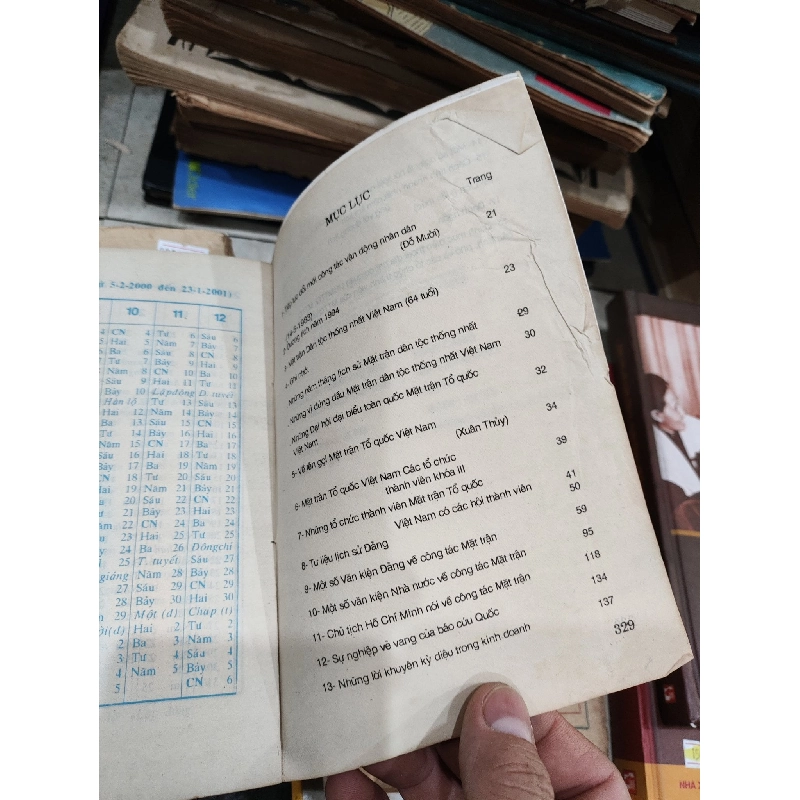 5-2-2000 đến 23-1-2001)
10 11 12
CN 4 Tư 6 Sáu 6
Hai 5 Năm 7 Bảy 7
Ba 6 Sáu 8 CN 8
Tư 7 Bảy 9 Hai 9
Năm 8 CN 10 Ba 10
Sáu 9 Hai 11 Tư 11
Bảy 10 Lập đông D. tuyết
Hàn lộ Tư 13 Sáu 13
Hai 12 Năm 14 Bảy 14
Ba 13 Sáu 15 CN 15
Tư 14 Bảy 16 Hai 16
Năm 15 CN 17 Ba 17
Sáu 16 Hai 18 Tư 18
Bảy 17 Ba 19 Năm 19
CN 18 Tư 20 Sáu 20
Hai 19 Năm 21 Bảy 21
Ba 20 Sáu 22 CN 22
Tư 21 Bảy 23 Hai 23
Năm 22 CN 24 Ba 24
Sáu 23 Hai 25 Tư 25
Bảy 24 Ba 26 Đông chí
CN 25 T. tuyết Sáu 27
giáng Năm 28 Bảy 28
27 Sáu 29 CN 29
28 Bảy 30 Hai 30
29 Một (đ) Chạp (t)
Hai 2 Tư 2
2 Ba 3 Năm 3
3 Tư 4 Sáu 4
4 Năm 5 Bảy 5
5 CN 6
MỤC LỤC
Trang
đổi mới công tác vận động nhân dân 21
(Đỗ Mười)
năm 1994
Mặt trận Dân tộc thống nhất Việt Nam (64 tuổi) 23
4- Ghi nhớ
Những năm tháng lịch sử Mặt trận dân tộc thống nhất 29
Những vị đứng đầu Mặt trận dân tộc thống nhất Việt Nam 30
Những Đại hội đại biểu toàn quốc Mặt trận Tổ quốc
Việt Nam 32
5- Về tên gọi Mặt trận Tổ quốc Việt Nam 34
(Xuân Thủy)
6- Mặt trận Tổ quốc Việt Nam Các tổ chức
thành viên khóa III 39
7- Những tổ chức thành viên Mặt trận Tổ quốc 41
Việt Nam có các hội thành viên 50
8- Tư liệu lịch sử Đảng 59
9- Một số Văn kiện Đảng về công tác Mặt trận 95
10- Một số văn kiện Nhà nước về công tác Mặt trận 118
11- Chủ tịch Hồ Chí Minh nói về công tác Mặt trận 134
12- Sự nghiệp vẻ vang của báo cứu Quốc 137
13- Những lời khuyên kỳ diệu trong kinh doanh
329